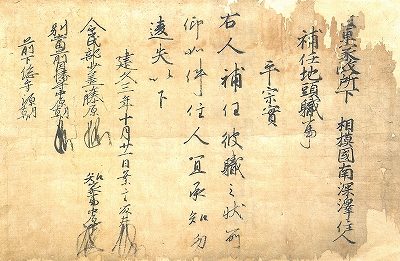 將軍家政所下　相模國南深澤住人
補任地頭職事
平宗實
右人補任彼職之状所
仰如件住人宜承知勿
違失以下
建久三年十月廿一日案主藤井
知家事中原
令民部少丞藤原
別當前因幡守中原朝臣
前下総守源朝臣